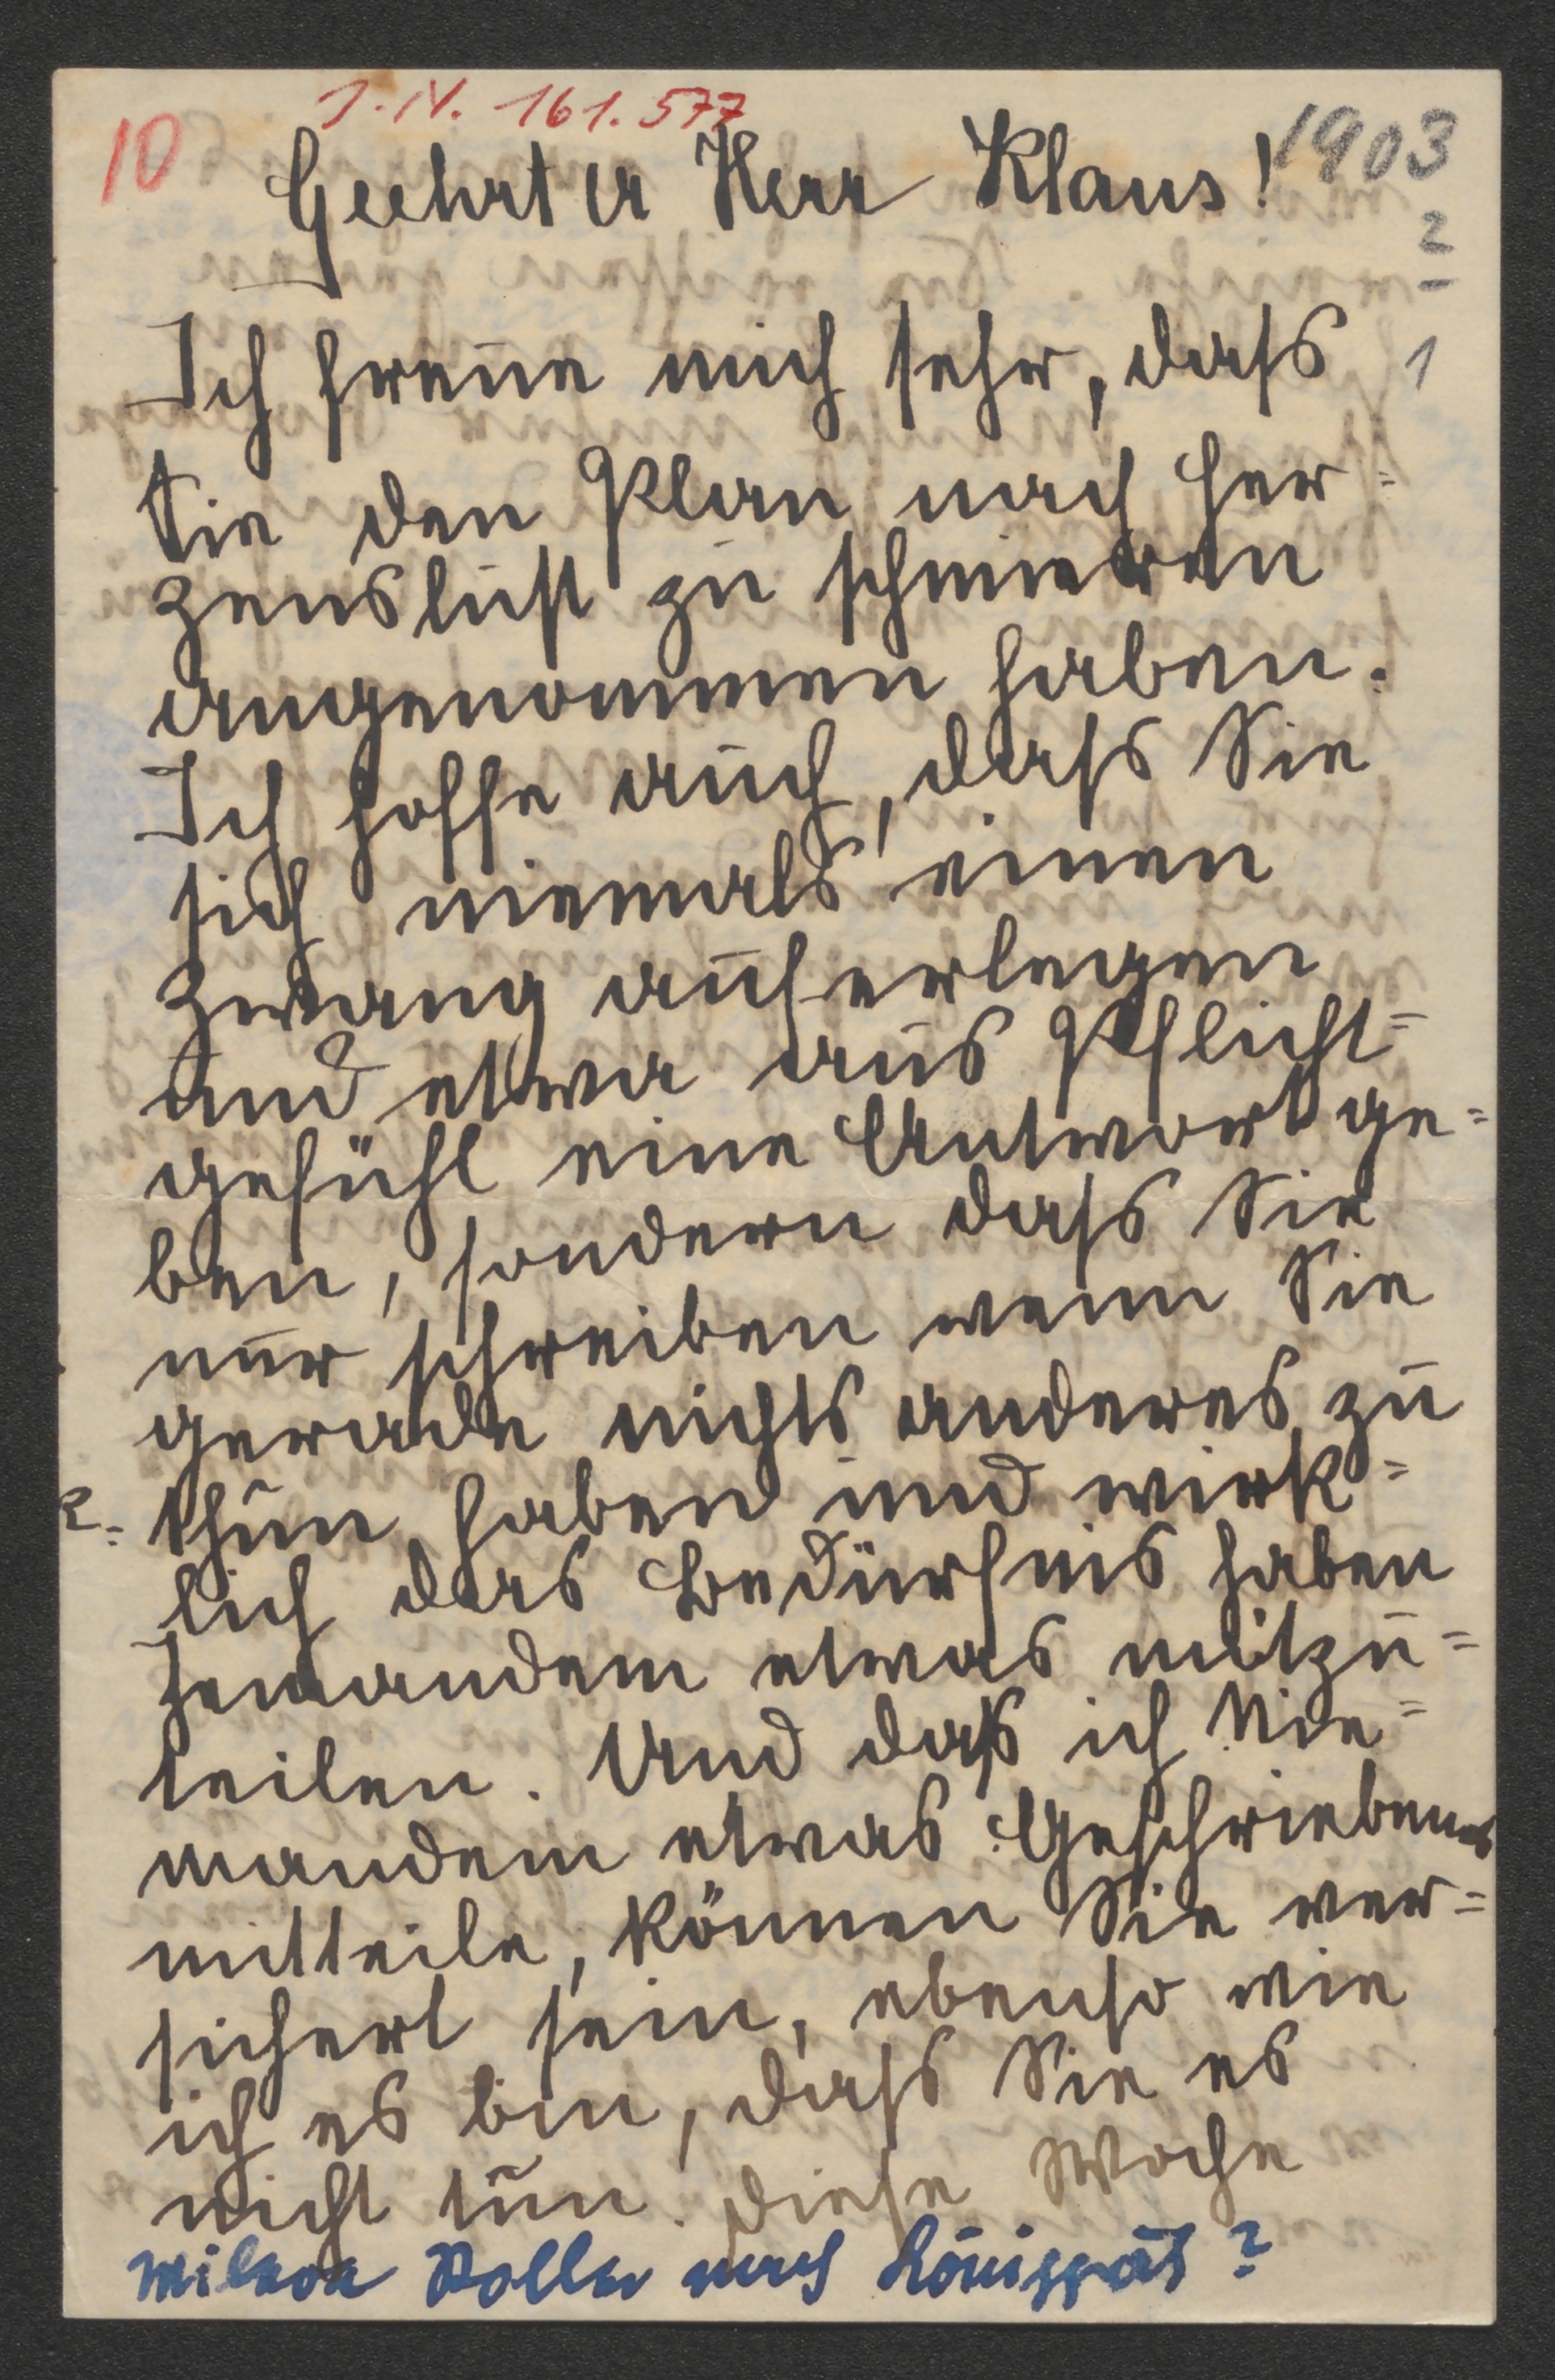 J.N. 161.577
10
1903
Geehrter Herr Klaus!
2
1
Ich freue mich sehr, dass
Sie den Plan nach Her=
zenslust zu schmieren
angenommen haben.
Ich hoffe auch, dass Sie
sich niemals einen
Zwang auferlegen
und etwa aus Pflicht=
gefühl eine Antwort ge=
ben, sondern dass Sie
nur schreiben wenn Sie
gerade nichts anderes zu
thun haben und wirk=
lich das Bedürfnis haben
Jemandem etwas mitzu=
teilen. Und dass ich Nie=
mandem etwas Geschriebenes
mitteile, können Sie ver=
sichert sein, ebenso wie
ich es bin, dass Sie es
nicht tun. Diese Woche
Mileva Roller nach Königgrätz?